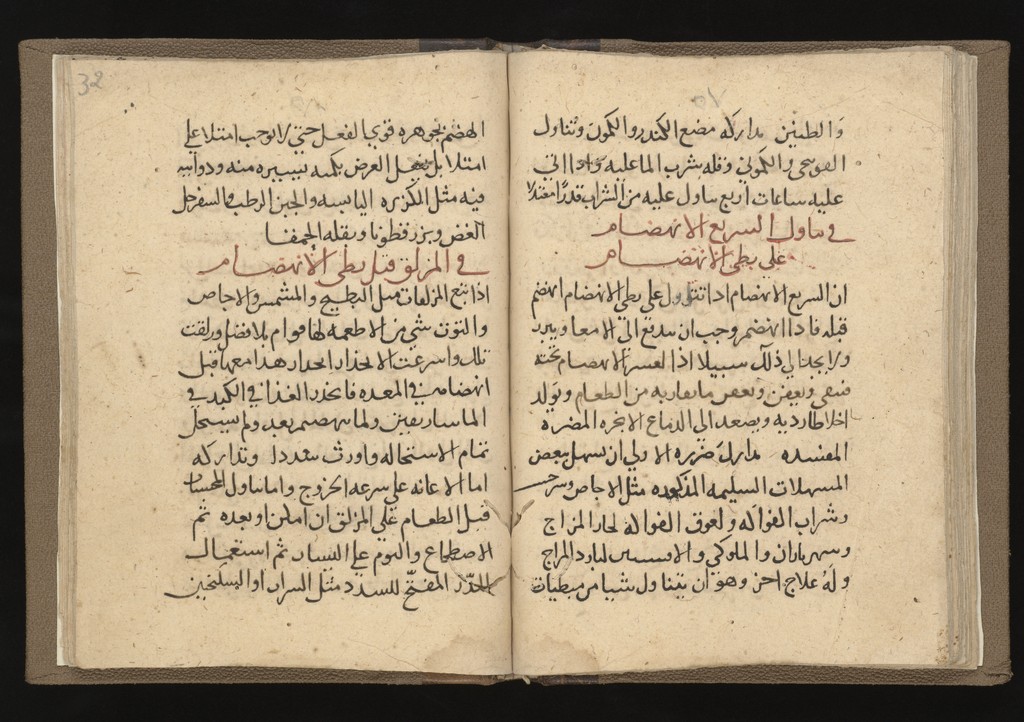 والطنين مداركه مضغ الكندر والكمون وتناول
الفودنجى والكمونى وقله شرب الما عليه واذا اتى
عليه ساعات اربع يناول عليه من الشراب قدرا معتدلا
فى تناول السريع الانهضام
على بطى الانهضام
ان السريع الانهضام اذا تنوول على بطى الانهضام انهضم
قبله فاذا انهضم وجب ان يندفع الى الامعا ويبرد
ولا يجد الى ذلك سبيلا اذا العسر الانهضام تحته
فيبقى ويعفن ويعفن ما يقاربه من الطعام ويولد
اخلاطا رديه ويصعد الى الدماغ الابخره المضره
المفسده مدارك ضرره الاولى ان يسهل ببعض
المسهلات السليمه المذكوره مثل الاجاص
وشراب الفواكه ولعوق الفواكه لحار المزاج
وشهرياران والملوكى لبارد المزاج
وله علاج اخر وهو ان يتناول شيا من مبطيات
32
الهضم بجوهره قوى الفعل حتى لا يوجب امتلا على
امتلا بل يفعل الغرض بكمه يسيره منه ودوابه
فيه مثل الكزبره اليابسه والجبن الرطب والسفرجل
الغض وبزر قطونا وبقله الحمقا
فى المزلق قبل بطى الانهضام
اذا تبع المزلقات مثل البطيخ والمشمش والاجاص
والتوت شى من الاطعمه لها قوام بلا فضل وزلقت
تلك واسرعت الانحدار انحدر هذا معها قبل
انهضامه فى المعده فانحدر الغذا فى الكبد فى
الماساريقين ولما ينهضم بعد ولم يستحل
تمام الاستحاله واورث سددا وتداركه
اما الاعانه على سرعه الخروج واما تناول
قبل الطعام على المزلق ان امكن او بعده ثم
الاضطجاع والنوم على اليسار ثم استعمال
المدر المفتح للسدد مثل الشراب او السكنجبين